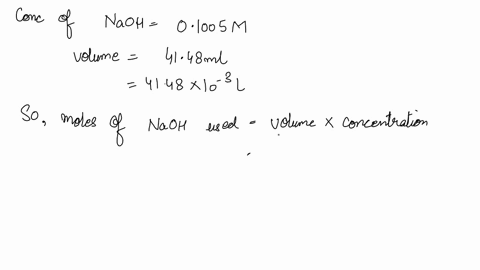 Conc of NaOH = 0.1005 M
volume = 41.48 ml
= 41.48 × 10⁻³ L
So, moles of NaOH used = volume × concentration